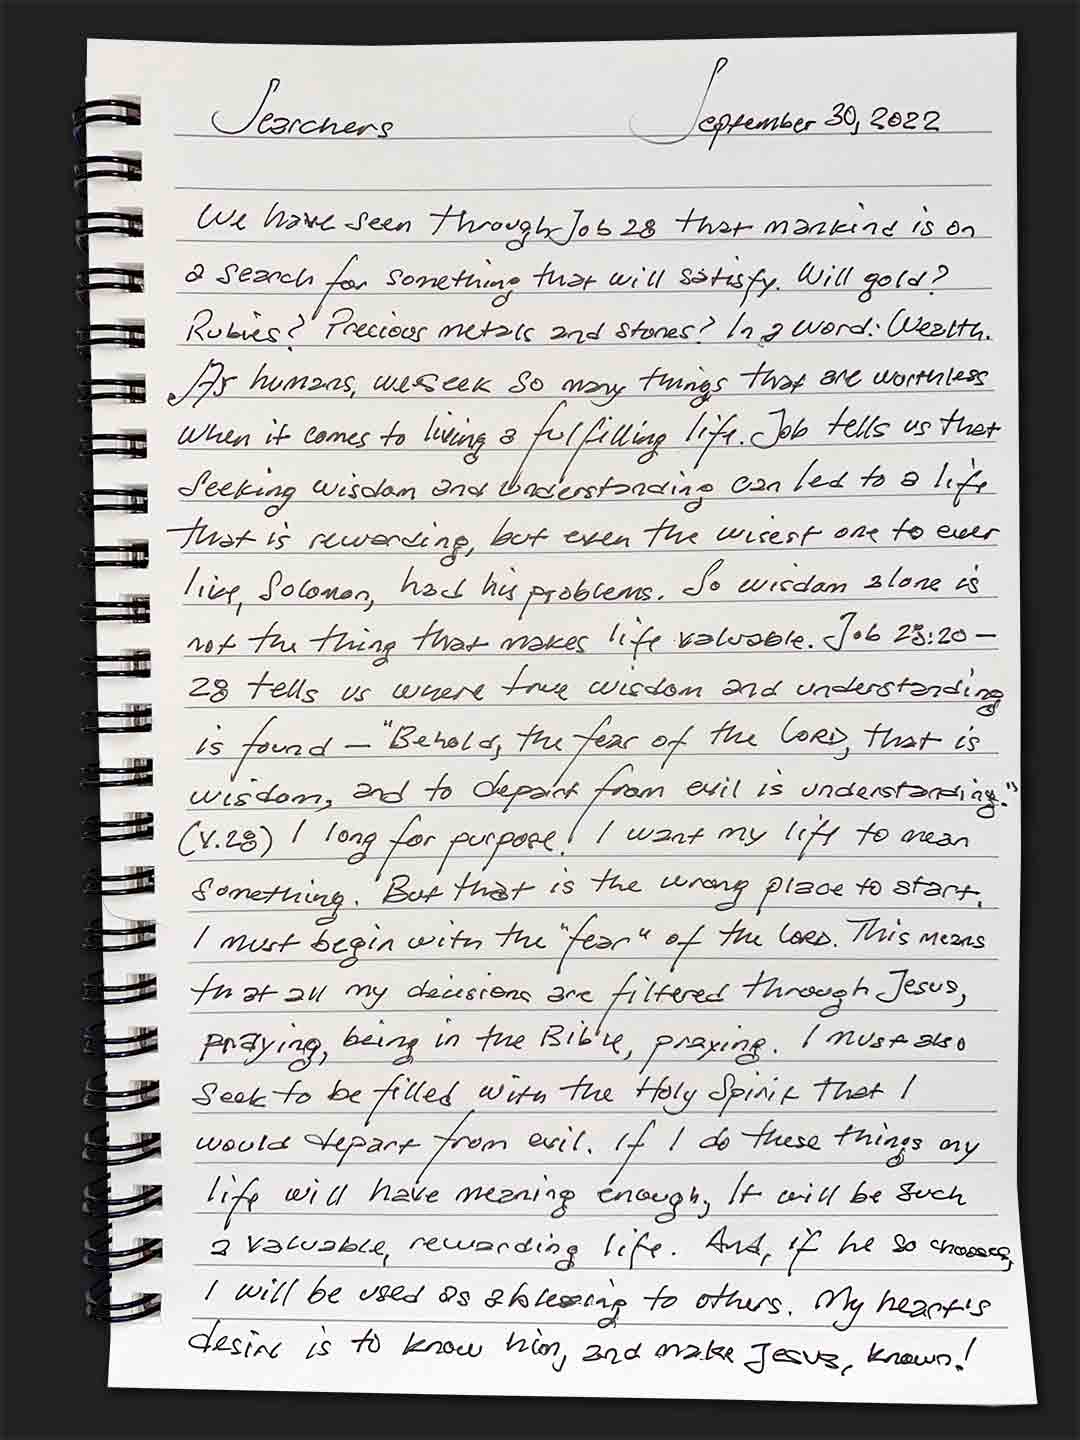 Searchers September 30, 2022
We have seen through Job 28 that mankind is on
a search for something that will satisfy. Will gold?
Rubies? Precious metals and stones? In a word: Wealth.
As humans, we seek so many things that are worthless
when it comes to living a fulfilling life. Job tells us that
seeking wisdom and understanding can led to a life
that is rewarding, but even the wisest one to ever
live, Solomon, had his problems. So wisdom alone is
not the thing that makes life valuable. Job 28:20–
28 tells us where true wisdom and understanding
is found – "Behold, the fear of the LORD, that is
wisdom, and to depart from evil is understanding."
(v.28) I long for purpose! I want my life to mean
something. But that is the wrong place to start.
I must begin with the "fear" of the LORD. This means
that all my decisions are filtered through Jesus,
praying, being in the Bible, praying. I must also
seek to be filled with the Holy Spirit that I
would depart from evil. If I do these things my
life will have meaning enough, It will be such
a valuable, rewarding life. And, if he so chooses,
I will be used as a blessing to others. My heart's
desire is to know him, and make Jesus, known!